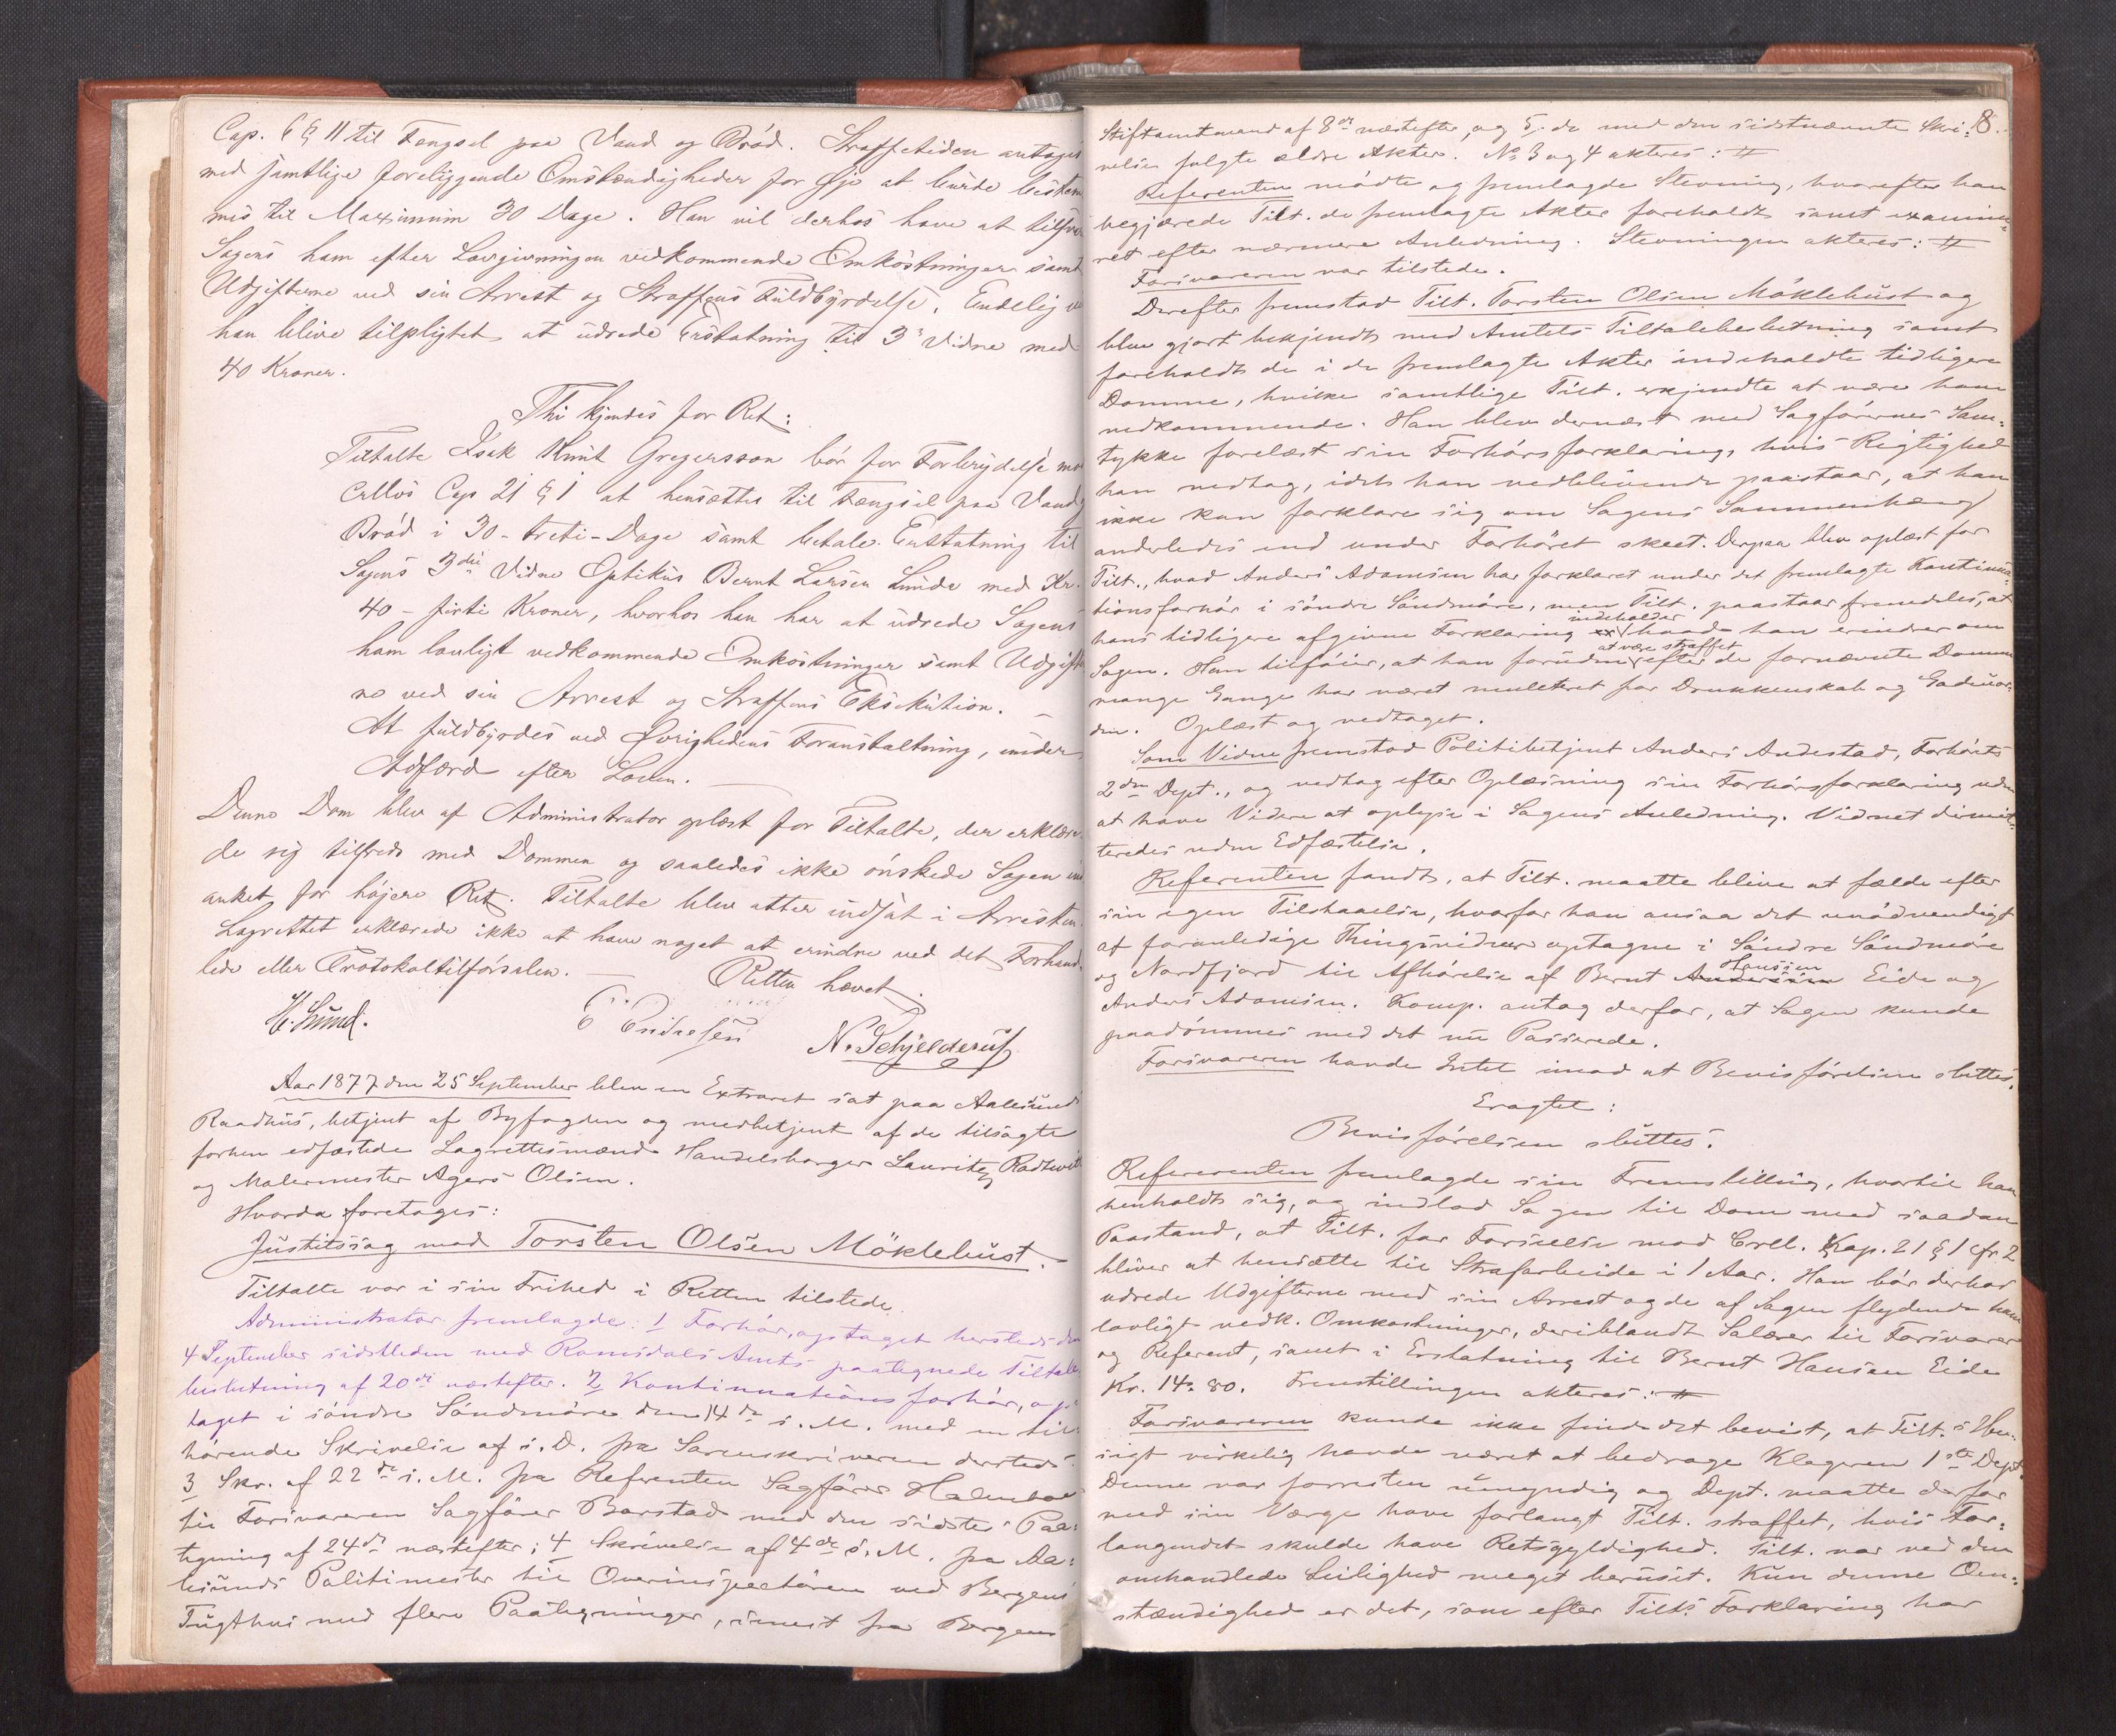 Cap. 6 § 11 til Fængsel paa Vand og Brød. Straffetiden antages
med samtlige foreliggende Omstændigheder for Øje at burde bestem
mes til Maximum 30 Dage. Han vil derhos have at tilsva
Sagens ham efter Lovgivningen vedkommende Omkostninger samt
Udgifterne ved sin Arrest og Straffens Fuldbyrdelse. Endelig vil
han blive tilpligtet at udrede Erstatning til 3die Vidne med
40 Kroner.
Thi kjendes for Ret:
Tiltalte Isak Knut Gregersson bør for Forbrydelse mod
Crllvs Cap 21 § 1 at hensættes til Fængsel paa Vand og
Brød i 30 - treti - Dage samt betale Erstatning til
Sagens 3die Vidne Optikus Bernt Larsen Lunde med Kr.
40 - firti Kroner, hvorhos han har at udrede Sagens
ham lovligt vedkommende Omkostninger samt Udgifter
ne ved sin Arrest og Straffens Eksekution. —
At fuldbyrdes ved Øvrighedens Foranstaltning, under
Adfærd efter Loven. —
Denne Dom blev af Administrator oplæst for Tiltalte, der erklære
de sig tilfreds med Dommen og saaledes ikke ønskede Sagen ind
anket for højere Ret. Tiltalte blev atter indsat i Arresten.
Lagrettet erklærede ikke at have noget at erindre ved det Forhand
lede eller Protokoltilførselen. — Retten hævet.
H. Lund. E Endresen N. Schjelderup
Aar 1877 den 25 September blev en Extraret sat paa Aalesunds
Raadhus, betjent af Byfogden og medbetjent af de tilsagte
forhen edfæstede Lagrettesmænd Handelsborger Lauritz Radtwitt
og Malermester Agers Olsen.
Hvorda foretoges:
Justitssag mod Torsten Olsen Möklebust.
Tiltalte var i sin Frihed i Retten tilstede.
Administrator fremlagde: 1 Forhør, optaget hersteds den
4 September sidstleden med Romsdals Amts paategnede Tiltale
beslutning af 20de næstefter. 2 Kontinuationsforhør, op=
taget i søndre Søndmøre den 14de s. M. med en til
hørende Skrivelse af s. D. fra Sorenskriveren dersteds.
3 Skr. af 22de s. M. fra Referenten Sagfører Holmboe
til Forsvareren Sagfører Barstad med den sidstes Paa=
tegning af 24de næstefter; 4 Skrivelse af 4de s. M. fra Aa=
lesunds Politimester til Overinspectøren ved Bergens
Tugthus med flere Paategninger, senest fra Bergens
8.
Stiftamtmand af 8de næstefter, og 5. de med den sidstnævnte Skri=
velse fulgte ældre Akter. No 3 og 4 akteres: #
Referenten mødte og fremlagde Stevning, hvorefter han
begjærede Tilt. de fremlagte Akter foreholdt samt examine=
ret efter nærmere Anledning. Stevningen akteres: #
Forsvareren var tilstede.
Derefter fremstod Tilt. Torsten Olsen Möklebust og
blev gjort bekjendt med Amtets Tiltalebeslutning samt
foreholdt de i de fremlagte Akter indeholdte tidligere
Domme, hvilke samtlige Tilt. erkjendte at være ham
vedkommende. Han blev dernæst med Sagførernes Sam=
tykke forelæst sin Forhørsforklaring, hvis Rigtighed
han vedtog, idet han vedblivende paastaar, at han
ikke kan forklare sig om Sagens Sammenhæng
anderledes end under Forhøret skeet. Derpaa blev oplæst for
Tilt., hvad Anders Adamsen har forklaret under det fremlagte Kontinua=
tionsforhør i søndre Søndmøre, men Tilt. paastaar fremdeles, at
hans tidligere afgivne Forklaring indeholder hvad han erindrer om
Sagen. Han tilføier, at han foruden at være straffet efter de fornævnte Domme
mange Gange har været mulkteret for Drukkenskab og Gadeuor=
den. Oplæst og vedtaget.
Som Vidne fremstod Politibetjent Anders Andestad, Forhørets
2den Dept., og vedtog efter Oplæsning sin Forhørsforklaring uden
at have Videre at oplyse i Sagens Anledning. Vidnet dimit=
teredes uden Edfæstelse.
Referenten fandt, at Tilt. maatte blive at fælde efter
sin egen Tilstaaelse, hvorfor han ansaa det unødvendigt
at foranledige Thingsvidner optagne i Søndre Søndmøre
og Nordfjord til Afhørelse af Bernt Hansen Eide og
Anders Adamsen. Komp. antog derfor, at Sagen kunde
paadømmes med det nu Passerede.
Forsvareren havde Intet imod at Bevisførelsen sluttes.
Eragtet:
Bevisførelsen sluttes.
Refererenten fremlagde sin Fremstilling, hvortil han
henholdt sig, og indlod Sagen til Dom med saadan
Paastand, at Tilt. for Forseelse mod Crll. Kap. 21 § 1 cfr 2
bliver at hensætte til Strafarbeide i 1 Aar. Han bør derhos
udrede Udgifterne med sin Arrest og de af Sagen flydende ham
lovligt vedk. Omkostninger, deriblandt Salærer til Forsvarer
og Referent, samt i Erstatning til Bernt Hansen Eide
Kr. 14. 80. Fremstillingen akteres: #
Forsvareren kunde ikke finde det bevist, at Tilt.s Hen=
sigt virkelig havde været at bedrage Klageren 1ste Dept.
Denne var forresten umyndig og Dept. maatte derfor
med sin Værge have forlangt Tilt. straffet, hvis For=
langendet skulde have Retsgyldighed. Tilt. var ved den
omhandlede Leilighed meget beruset. Kun denne Om=
stændighed er det, som efter Tilts Forklaring har